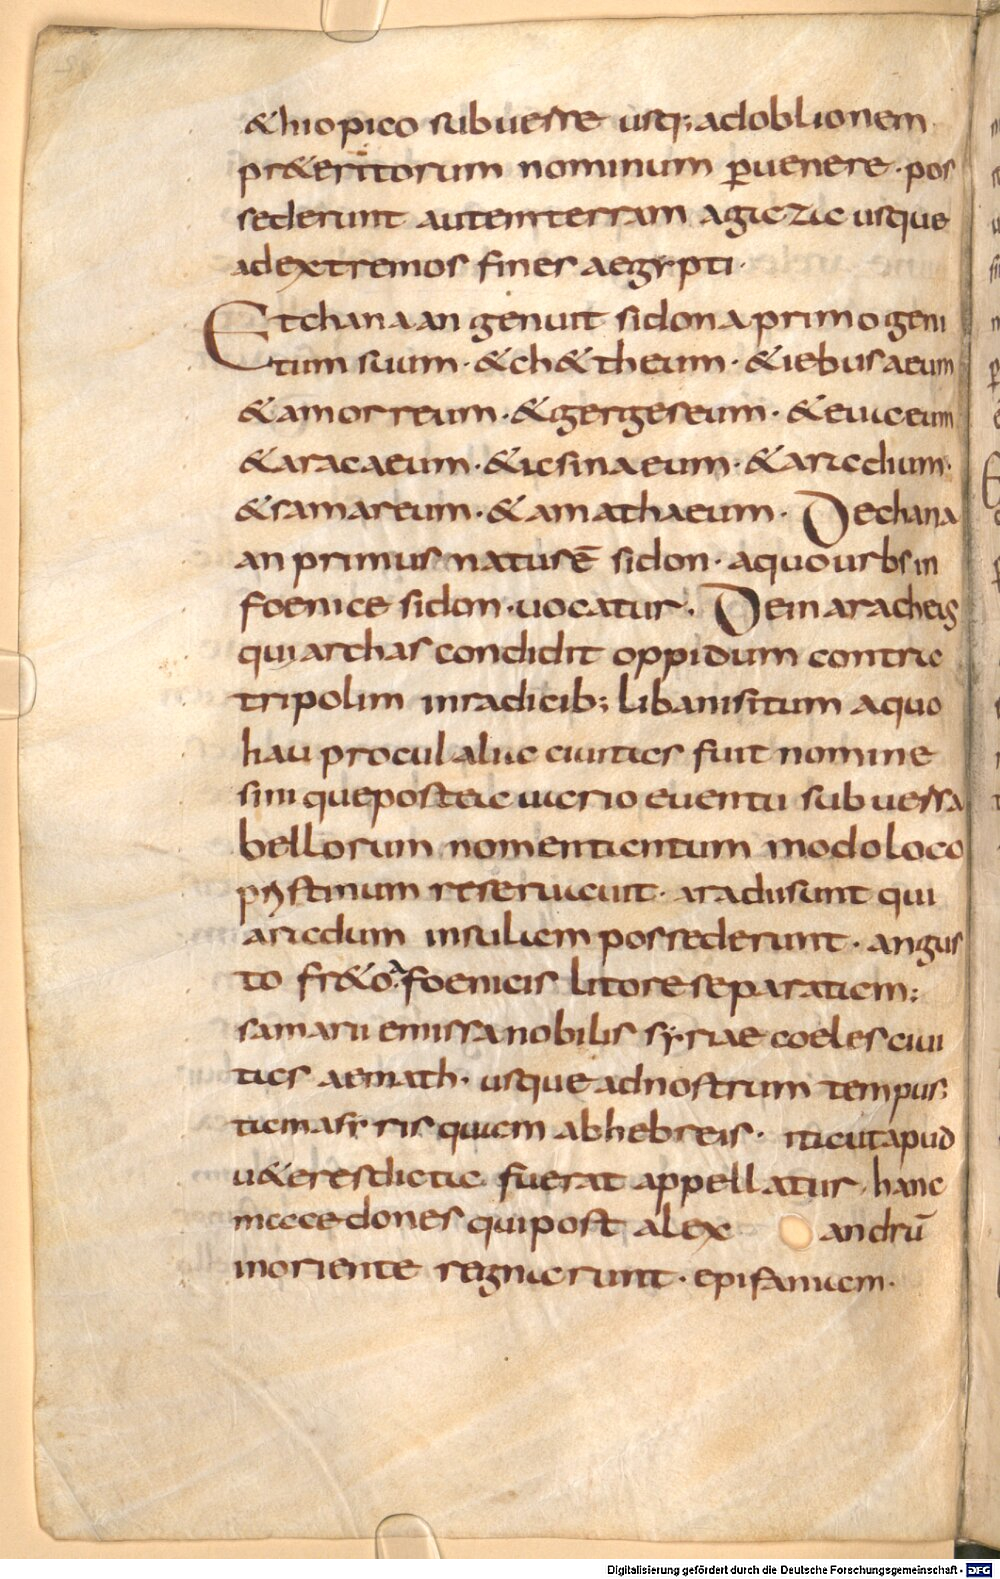 &hiopico subuerse usq; adoblionem
pr&eritorum nominum p̱uenere · pos
sederunt autem terram agazac usque
ad extremos fines aegypti ·
Etchanaan genuit sidona primogeni
tum suum · &ch&theum · &iebusaeum
&amorreum · &gergeseum · &euaeum
&aracaeum · &asinaeum · &aradium ·
&samareum · &amathaeum · Dechana
an primus natus ē sidon · aquo urbs in
foenice sidon · uocatur · Dein aracheis
qui archas condidit oppidum contra
tripolim inradicib; libani situm aquo
hau procul alia ciuitas fuit nomine
sini que postea uario euentu subuersa
bellorum nomen tantum modo loco
prystinum reseruauit · aradii sunt qui
aradum insulam possederunt · angus
to fr&o a foenicis litore separatam;
samarii emissa nobilis syriae coeles ciui
tas aemath · usque ad nostrum tempus;
tam asyris quam abhebreis · ita ut apud
u&eres dicta fuerat appellatur hanc
macedones qui post alex andrū
inoriente regnarunt · epifaniam ·
Digitalisierung gefördert durch die Deutsche Forschungsgemeinschaft - DFG